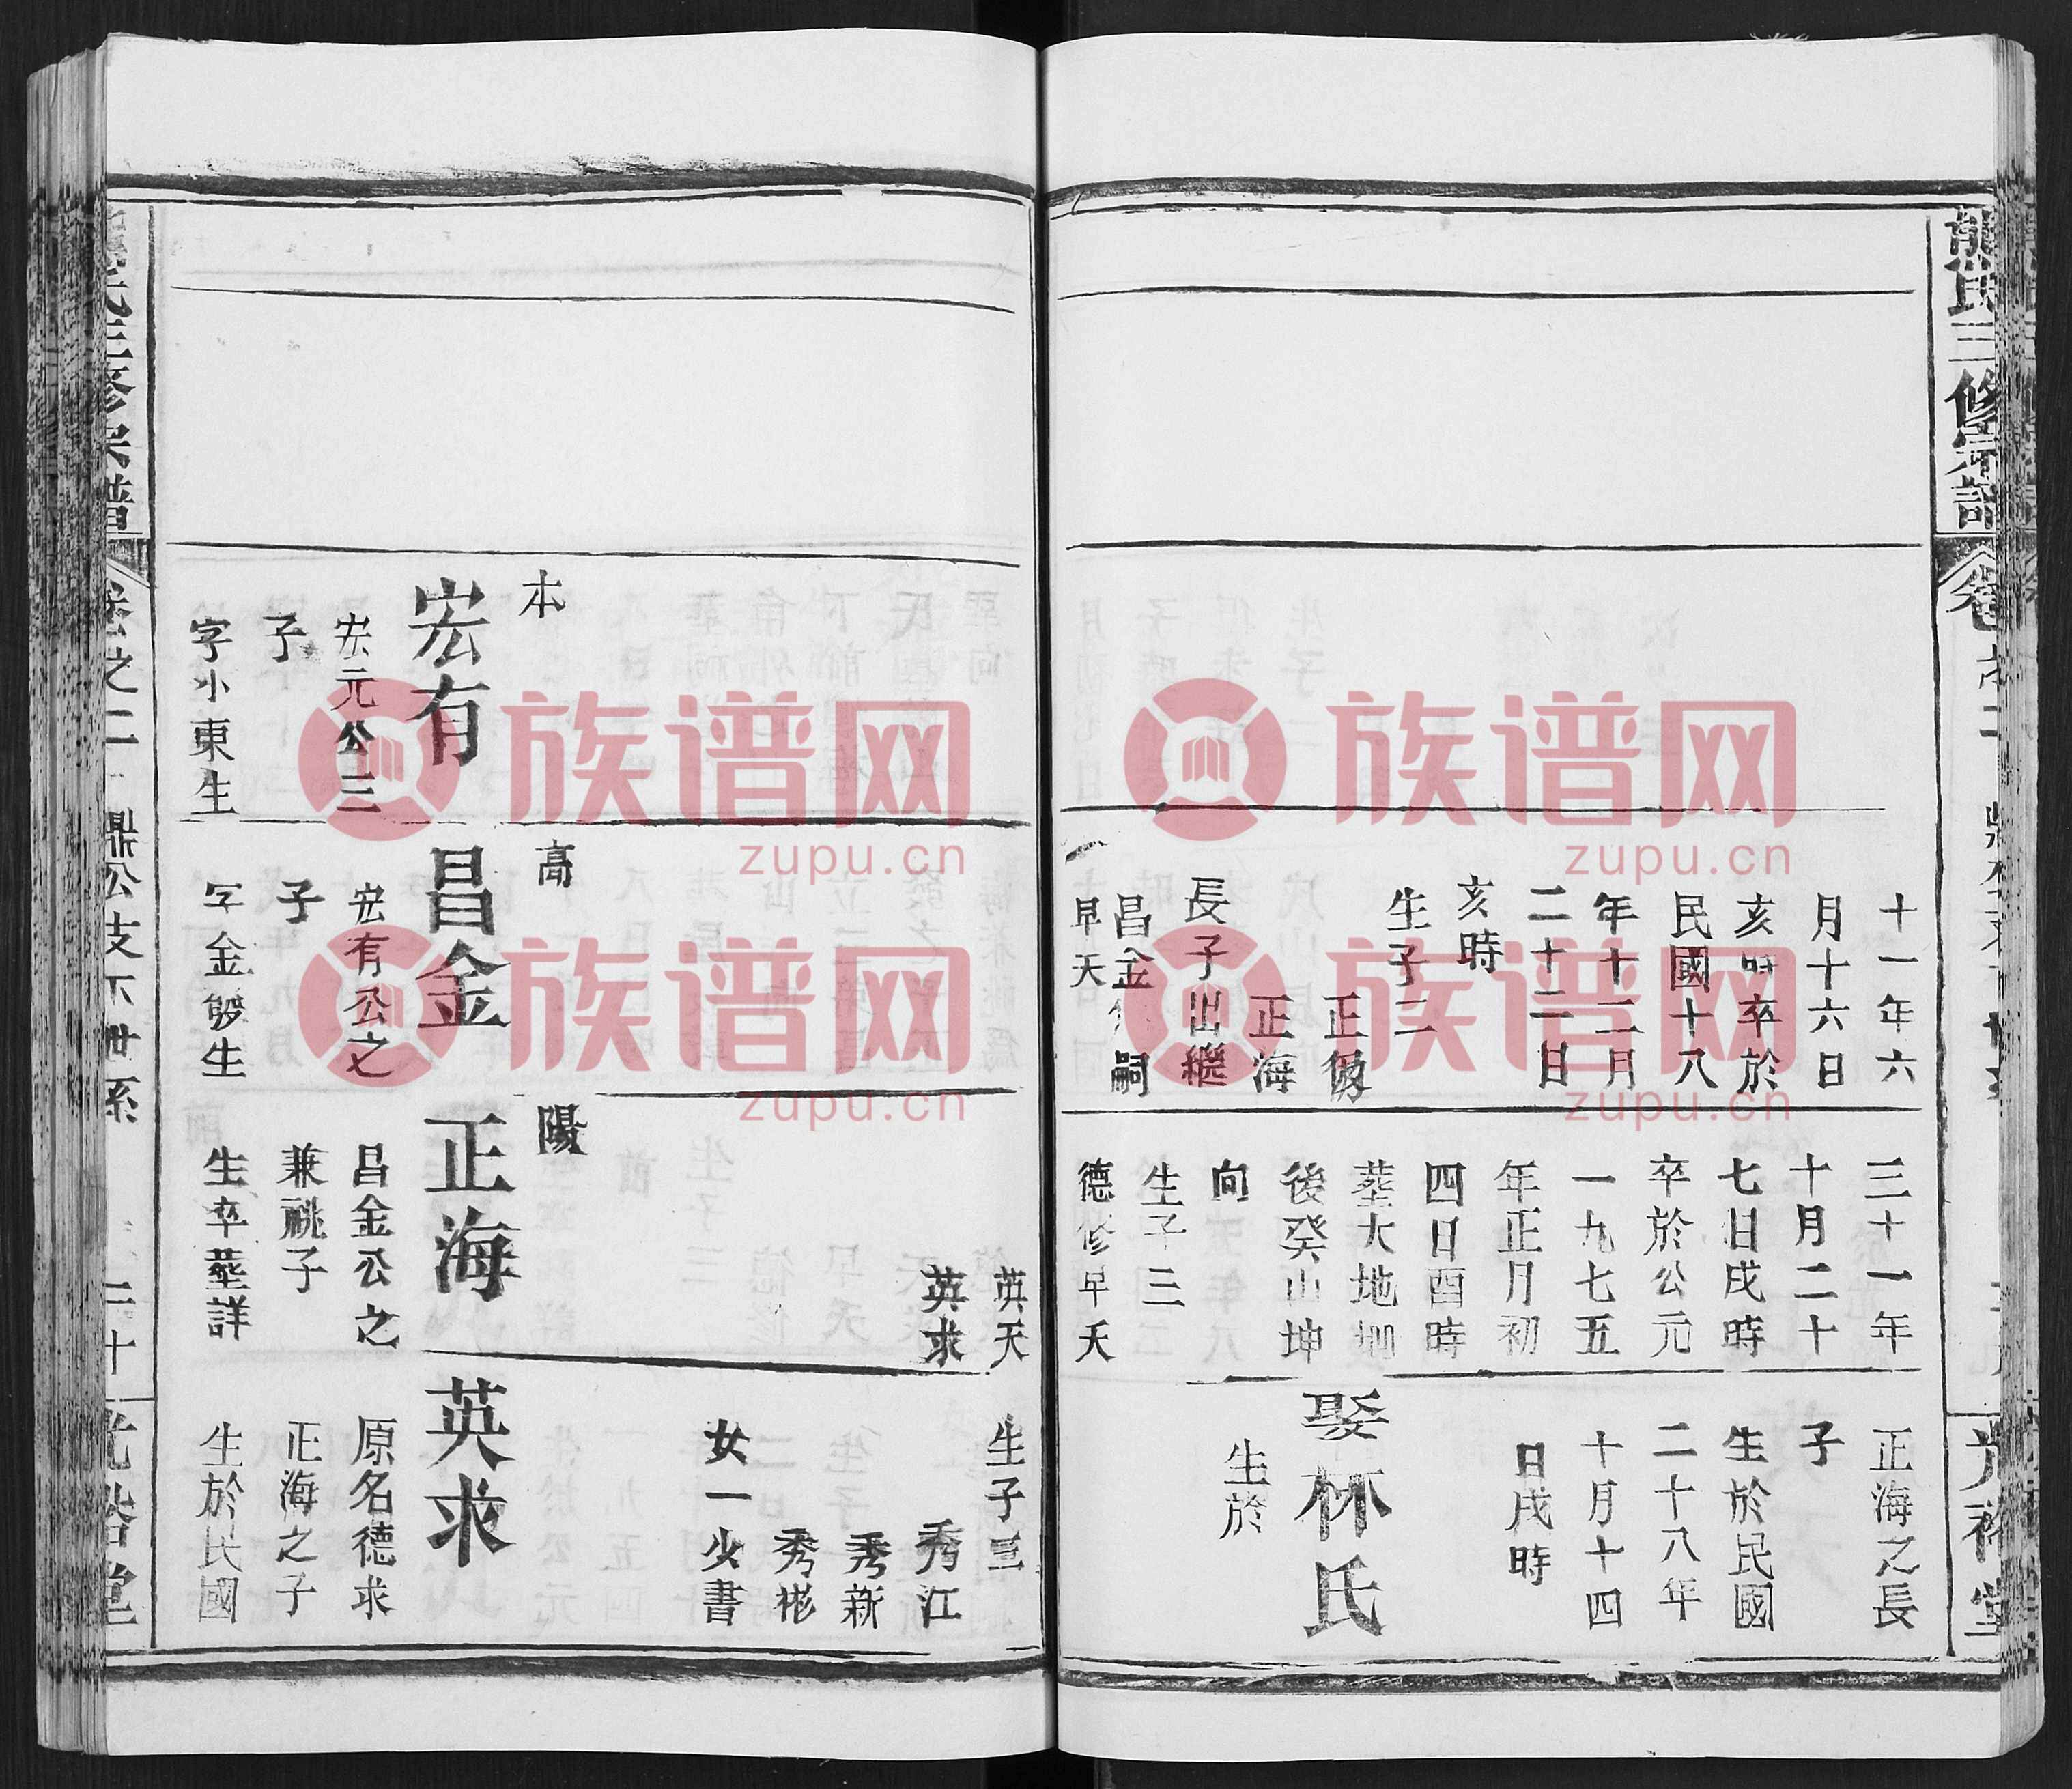 熊氏三修宗譜
十一年六
月十六日
亥時卒於
民國十八
年十二月
二十二日
亥時
生子二
正海
長子出繼
昌金 嗣
早夭
三十一年
十月二十
七日戌時
卒於公元
一九七五
年正月初
四日酉時
葬大地圳
後癸山坤
向
生子三
德修早夭
正海之長
子
生於民國
二十八年
十月十四
日戌時
娶林氏
生於
本
宏有
宏元公三
子
字小東生
高
昌金
宏有公之
子
字金 生
陽
正海
昌金公之
兼祧子
生卒葬詳
英天
英求
生子三
秀江
秀新
秀彬
女一少書
英求
原名德求
正海之子
生於民國
卷之二
鼎公支下世系
二十
族谱网
zupu.cn
族谱网
zupu.cn
族谱网
zupu.cn
族谱网
zupu.cn